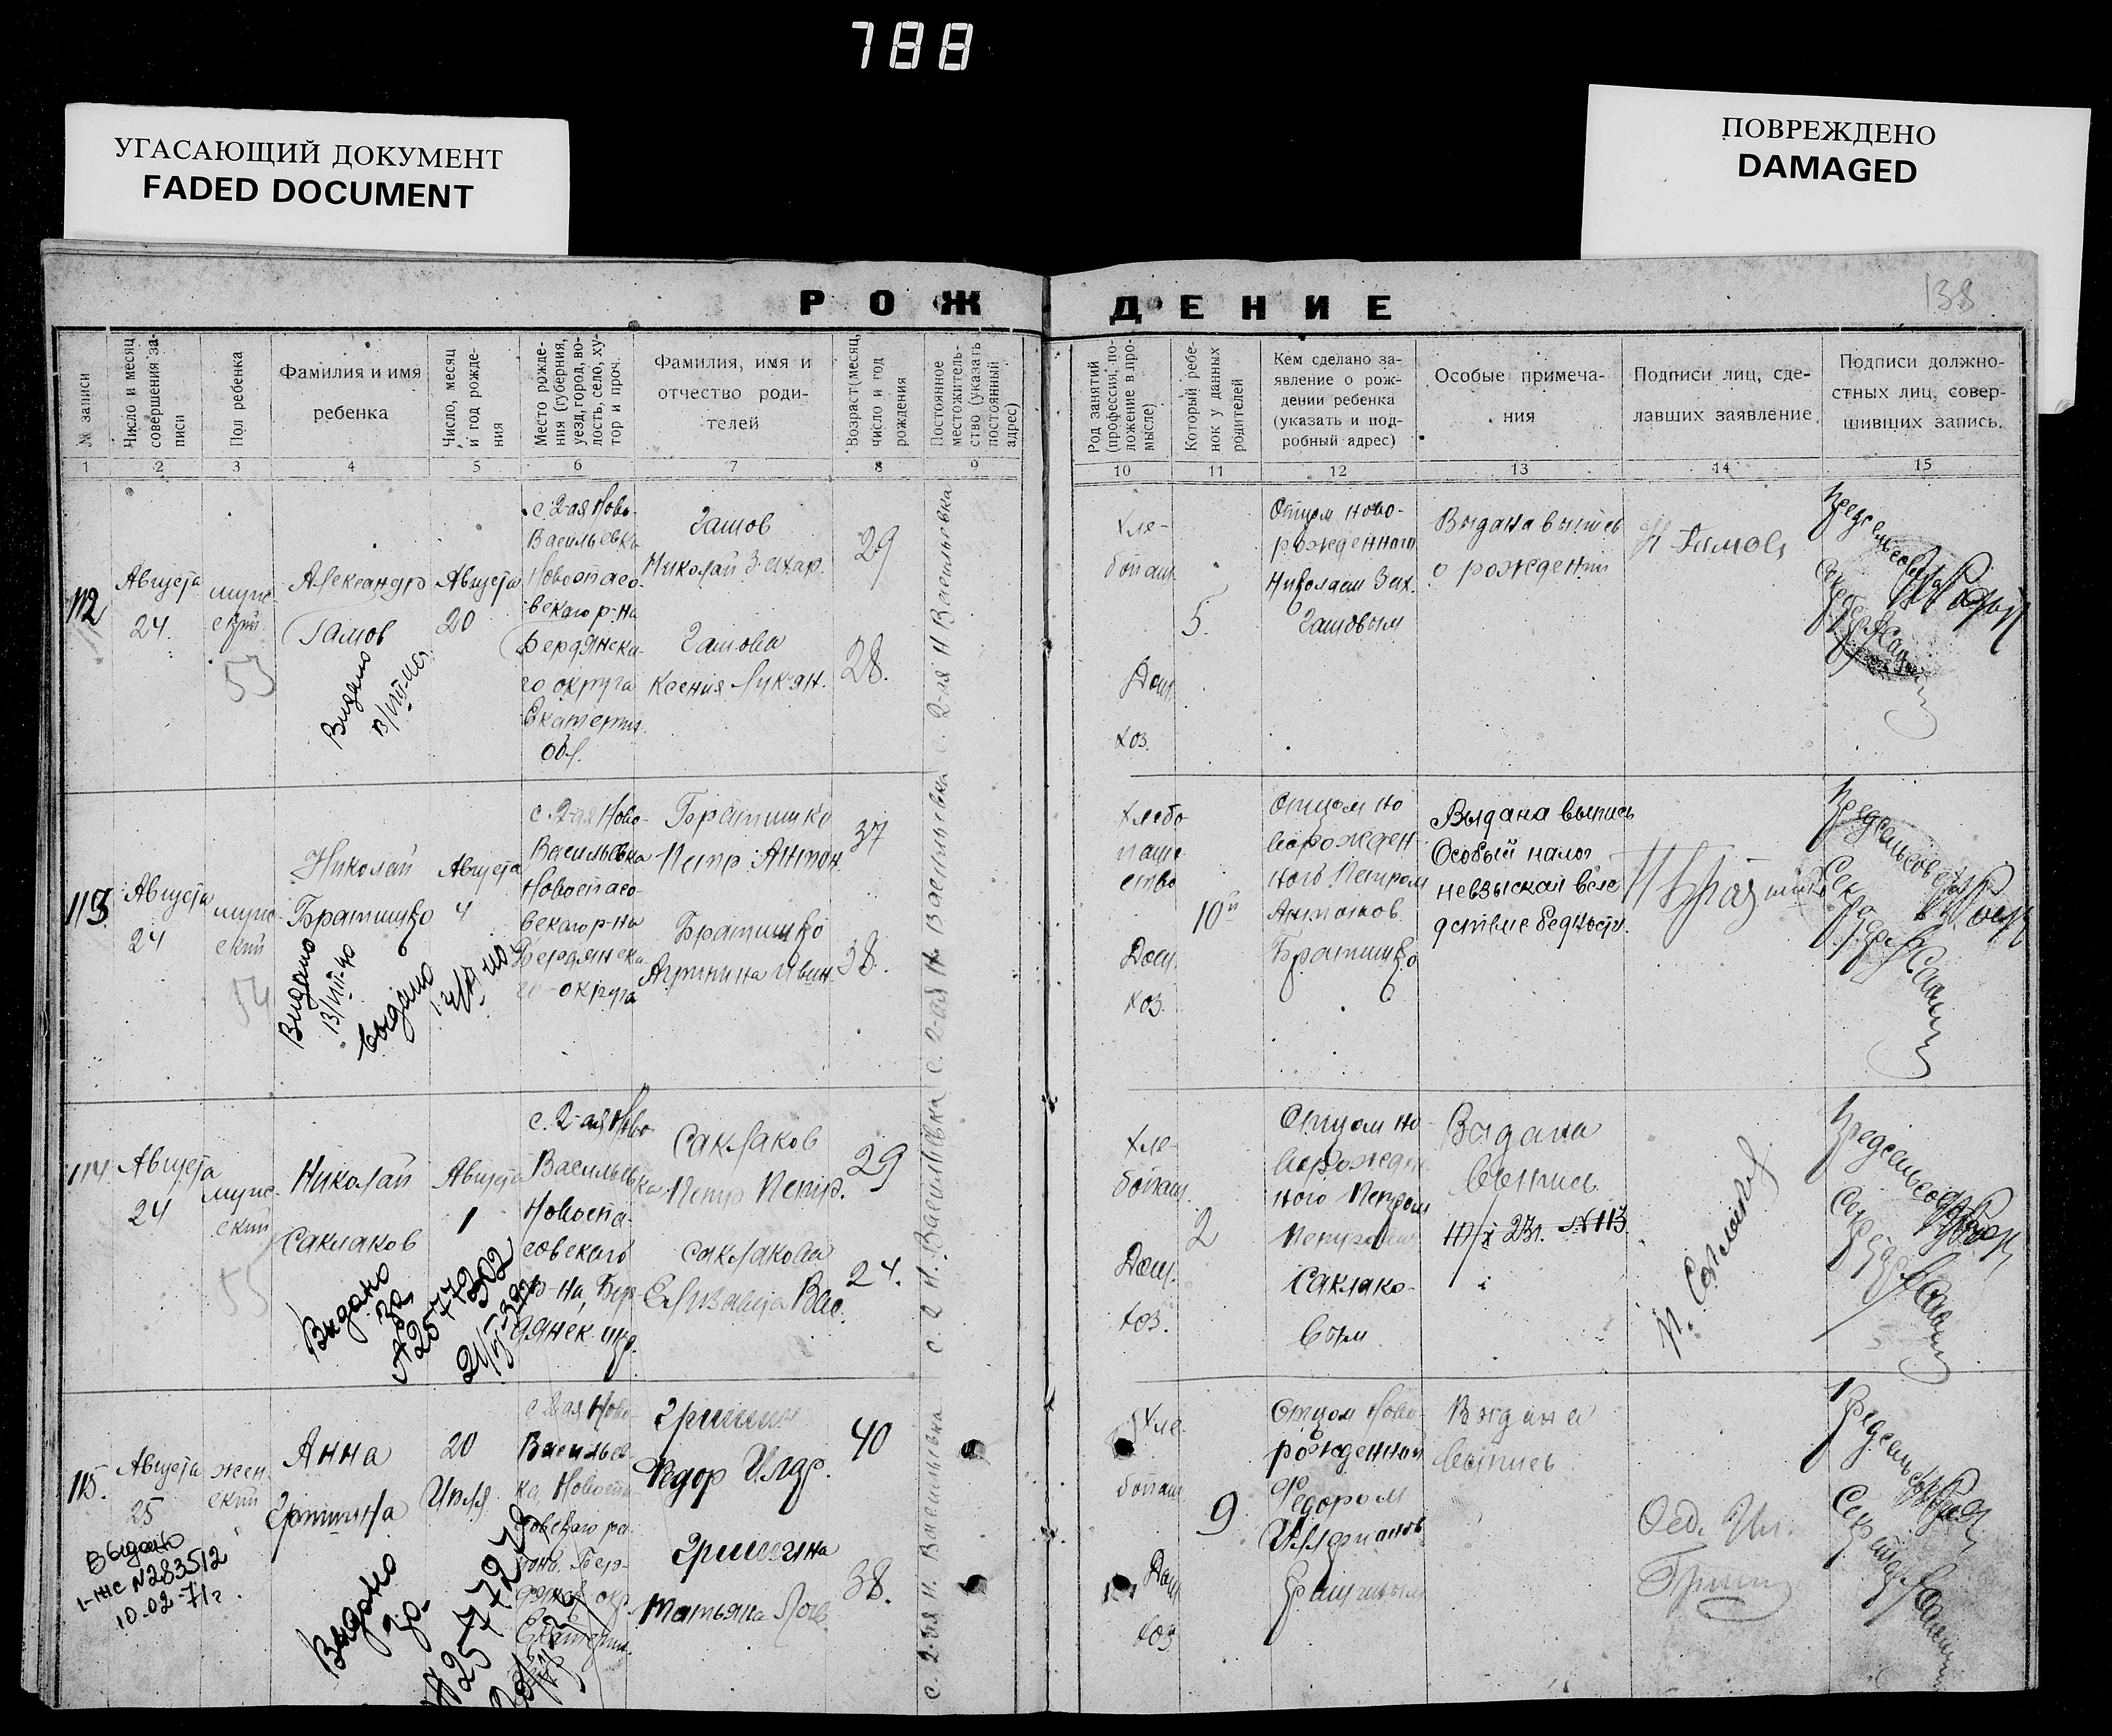 788
УГАСАЮЩИЙ ДОКУМЕНТ
FADED DOCUMENT
ПОВРЕЖДЕНО
DAMAGED
138
РОЖДЕНИЕ
№ записи
Число и месяц совершения за-
писи
Пол ребенка
Фамилия и имя
ребенка
Число, месяц
и год рожде-
ния
Место рожде-
ния (губерния,
уезд, город, во-
лость, село, ху-
тор и проч.
Фамилия, имя и
отчество роди-
телей
Возраст (месяц,
число и год
рождения
Постоянное
местожитель-
ство (указать
постоянный
адрес)
Род занятий
(профессия, по-
ложение в про-
мысле)
Который ребе-
нок у данных
родителей
Кем сделано за-
явление о рож-
дении ребенка
(указать и под-
робный адрес)
Особые примеча-
ния
Подписи лиц, сде-
лавших заявление
Подписи должно-
стных лиц, совер-
шивших запись.
1 2 3 4 5 6 7 8 9 10 11 12 13 14 15
112
Августа
24
муж-
ский
53
Александр
Гамов
Видано
13/VIII-40
Августа
20
с. 2-ая Ново-
Васильевка
Новоспасо-
вского р-на
Бердянско-
го округа
Екатерин.
обл.
Гамов
Николай Захар.
Гамова
Ксения Лукян.
29
28.
с. 2-ая Н Васильевка
Хле-
бопаш.
Дом.
хоз.
5.
Отцом ново-
рожденного
Николаем Зах.
Гамовым
Выдана выпись
о рождении
Н Гамов
Предсельсовета
Секретарь
113
Августа
24
муж-
ский
54
Николай
Братишко
Видано
13/VIII-40
выдано
Августа
4
с. 2-ая Ново-
Васильевка
Новоспасо-
вского р-на
Бердянско-
го округа
Братишко
Петр Антон.
Братишко
Агрипина Иван.
37
38.
с. 2-ая Н Васильевка
Хлебо
паше
ство
Дом.
хоз.
10й
Отцом но
ворожден
ного Петром
Антонов.
Братишко
Выдана выпись
Особый налог
невзыскал всле
дствие бедности.
Предсельсовета
Секретарь
114
Августа
24
муж-
ский
55
Николай
Саклаков
Видано
за
№25772302
Августа
1
с. 2-ая Ново
Васильевка
Новоспа-
совского
р-на, Бер-
дянск. окр.
Саклаков
Петр Петр.
Саклакова
Елизавета Вас.
29
24.
с. 2 Н. Васильевка
Хле-
бопаш.
Дом.
хоз.
2
Отцом но-
ворожден-
ного Петром
Петровым
Саклако-
вым
Выдана
выпись
№113
П. Саклаков
Предсельсовета
Секретарь
115.
Августа
25
Выдано
I-ЖС №283512
10-02-71 г.
жен-
ский
Анна
Гришина
Выдано
20
Июля
с 2-ая Ново-
Васильев-
ка, Новоспа-
совского ра-
йона Бер-
дянск. окр.
Екатерин.
Гришин
Федор Илар.
Гришина
Татьяна
40
38.
с. 2-ая Н. Васильевка
Хле-
бопаш
Дом
хоз
9
Отцом Ново-
рожденной
Федором
Гришиным
Выдана
выпись
Предсельсовета
Секретарь